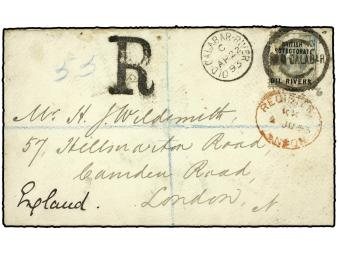 55
R
OLD CALABAR · RIVER
C
AP 24
93
BRITISH
PROTECTORATE
OLD CALABAR
OIL RIVERS
Mr. H. J. Wildsmith,
57, Hillmarton Road
Camden Road,
London, N
England.
REGISTERED
LONDON